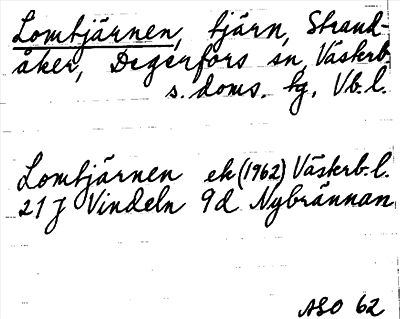 Lomtjärnen, tjärn, Strand-
åker, Degerfors sn, Västerb.
s. doms. tg, Vb. l.
Lomtjärnen ek (1962) Västerb. l.
21 J Vindeln 9d Nybrännan
ASO 62